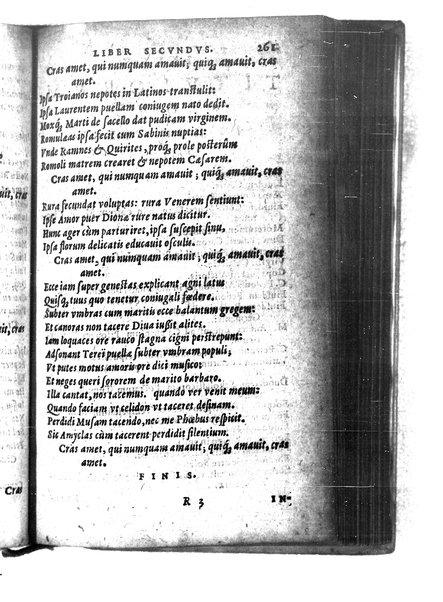 LIBER SECVNDVS. 261
Cras amet, qui numquam amauit; quiq́, amauit, cras
amet.
Ipsa Troianos nepotes in Latinos transtulit:
Ipsa Laurentem puellam coniugem nato dedit.
Moxq́, Marti de sacello dat pudicam virginem.
Romuleas ipsa fecit cum Sabinis nuptias:
Vnde Ramnes & Quirites, proq́, prole posterûm
Romoli matrem crearet & nepotem Cæsarem.
Cras amet, qui numquam amauit; quiq́, amauit, cras
amet.
Rura fecundat voluptas: rura Venerem sentiunt:
Ipse Amor puer Dionæ rure natus dicitur.
Hunc ager cùm parturiret, ipsa suscepit sinu,
Ipsa florum delicatis educauit osculis.
Cras amet, qui numquam amauit; quiq́, amauit, cras
amet.
Ecce iam super genestas explicant agni latus
Quisq́, tuus quo tenetur coniugali fœdere.
Subter vmbras cum maritis ecce balantum gregem:
Et canoras non tacere Diua iußit alites.
Iam loquaces ore rauco stagna cigni perstrepunt:
Adsonant Terei puellæ subter vmbram populi;
Vt putes motus amoris ore dici musico:
Et neges queri sororem de marito barbaro.
Illa cantat, nos tacemus. quando ver venit meum:
Quando faciam vt celidon vt tacere desinam.
Perdidi Musam tacendo, nec me Phœbus respicit.
Sic Amyclas cùm tacerent perdidit silentium.
Cras amet, qui numquam amauit; quiq́, amauit, cras
amet.
FINIS.
R 3 IN-
Cras